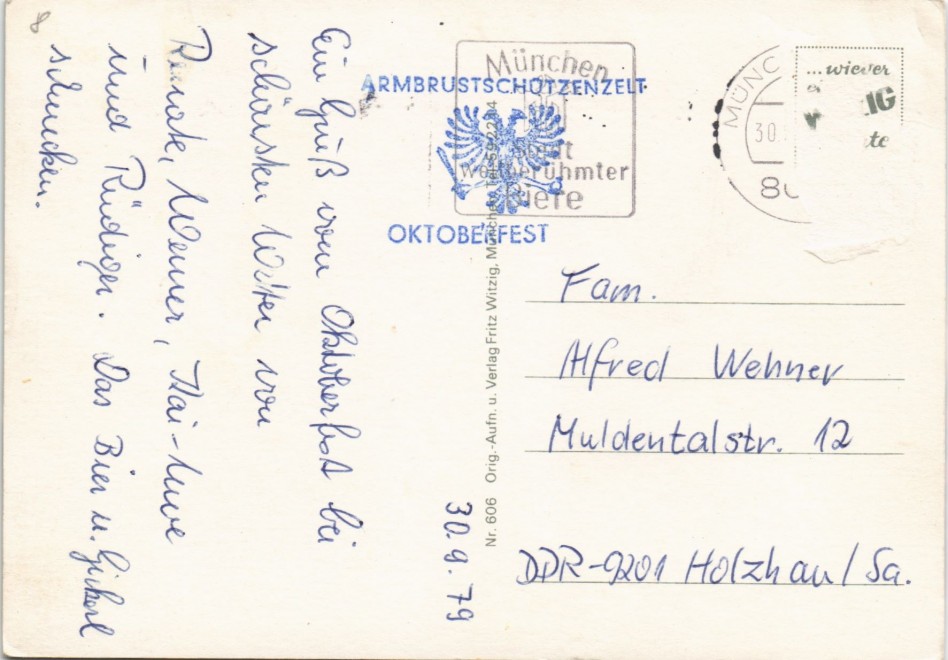 Ein Gruß vom Oktoberfest bei
schönsten Wetter von
Renate, Werner, Kai-Uwe
und Rüdiger. Das Bier u. Gickerl
schmecken.
30.9.79
ARMBRUSTSCHÜTZENZELT
OKTOBERFEST
München
Stadt
weltberühmter
Biere
Nr. 606 Orig.-Aufn. u. Verlag Fritz Witzig, München, Tel.
MÜNC
30.
80
...wieder
IG
te
Fam.
Alfred Wehner
Muldentalstr. 12
DDR-9201 Holzhau/Sa.
8